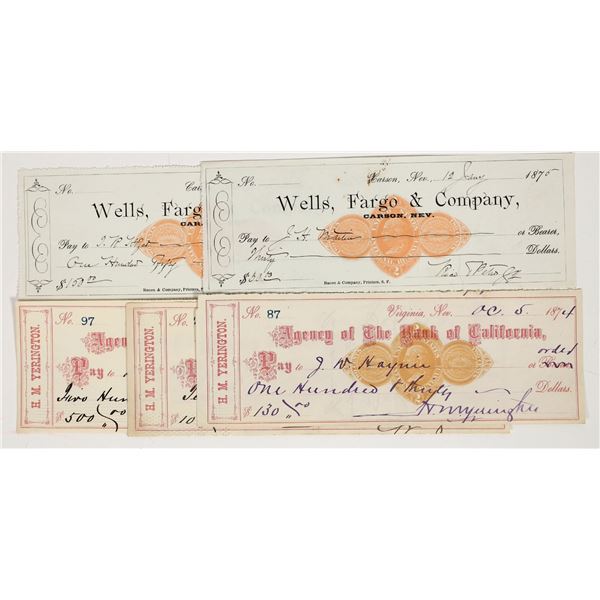 No.
Wells, Farg
CAR
Pay to
One Hundred Fifty
$150.00
Bacon & Company, Printers, S. F.
No.
Carson, Nev., 12 Jany 1875
Wells, Fargo & Company,
CARSON, NEV.
Pay to or Bearer,
Thirty Dollars.
Bacon & Company, Printers, S. F.
H. M. YERINGTON.
No. 97
Agen
Pay to
Two Hun
$500.00
H. M. YERINGTON.
Pay
$10
H. M. YERINGTON.
No. 87 Virginia, Nev. Oc 5. 1874
Agency of The Bank of California,
Pay to J. W. Haynie or
One Hundred & Thirty Dollars.
$130.00 HM Yerington